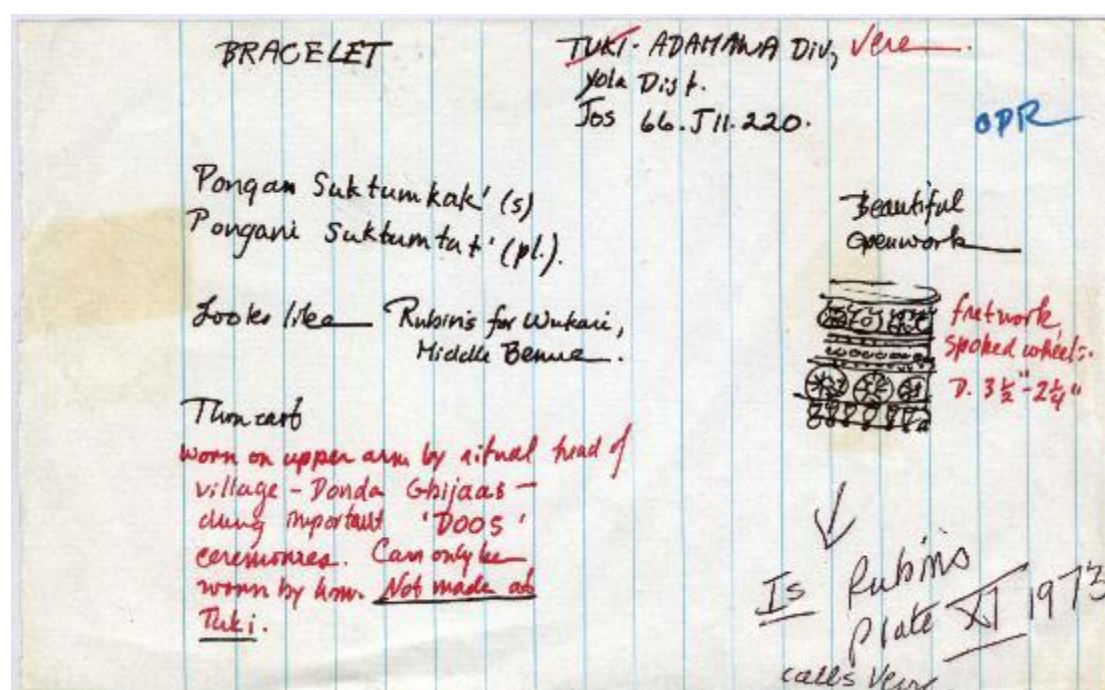 BRACELET
TUKI - ADAMAWA DIV, Vere.
Yola Dist.
Jos 66.J11.220.
OPR
Pongan Suktumkak' (s)
Pongani Suktumtat' (pl.).
Beautiful
openwork
Looks like Rubin's for Wukari,
Middle Benue.
fretwork,
spoked wheels.
D. 3½"-2¼"
cast
worn on upper arm by ritual head of
village - Donda Gbijaas -
during important 'DOOS'
ceremonies. Can only be
worn by him. Not made at
Tuki.
Is Rubin's
Plate XI 1973
calls Verre